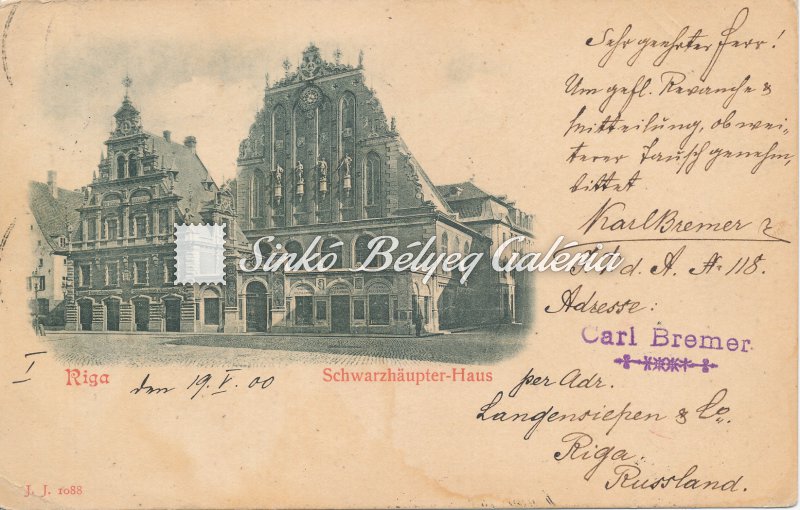 Sehr geehrter Herr!
Um gefl. Revanche &
Mitteilung, ob wei-
terer Tausch genehm,
bittet
Karl Bremer
d. A. № 118.
Adresse:
Carl Bremer.
per Adr.
Langensiepen & Co.
Riga.
Russland.
Sinkó Bélyeg Galéria
I
Riga
den 19. V. 00
Schwarzhäupter-Haus
J. J. 1088